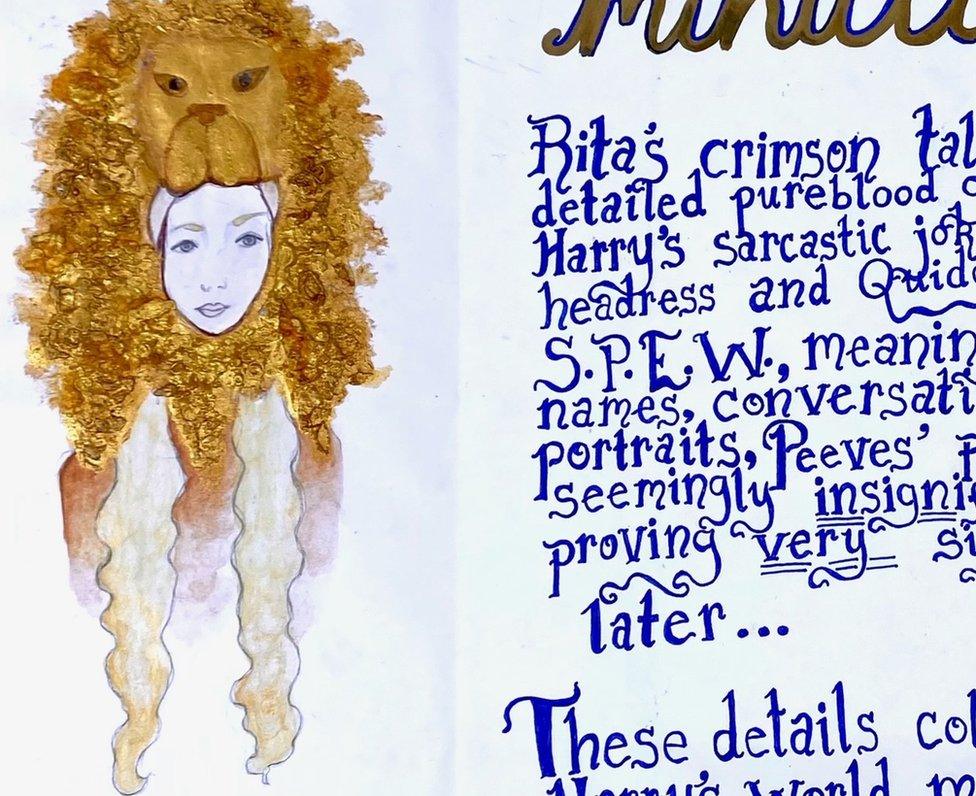 Rita's crimson tal
detailed pureblood
Harry's sarcastic jok
headress and Quid
S.P.E.W., meanin
names, conversati
portraits, Peeves'
seemingly insigni
proving very si
later...
These details col
Harry's World m